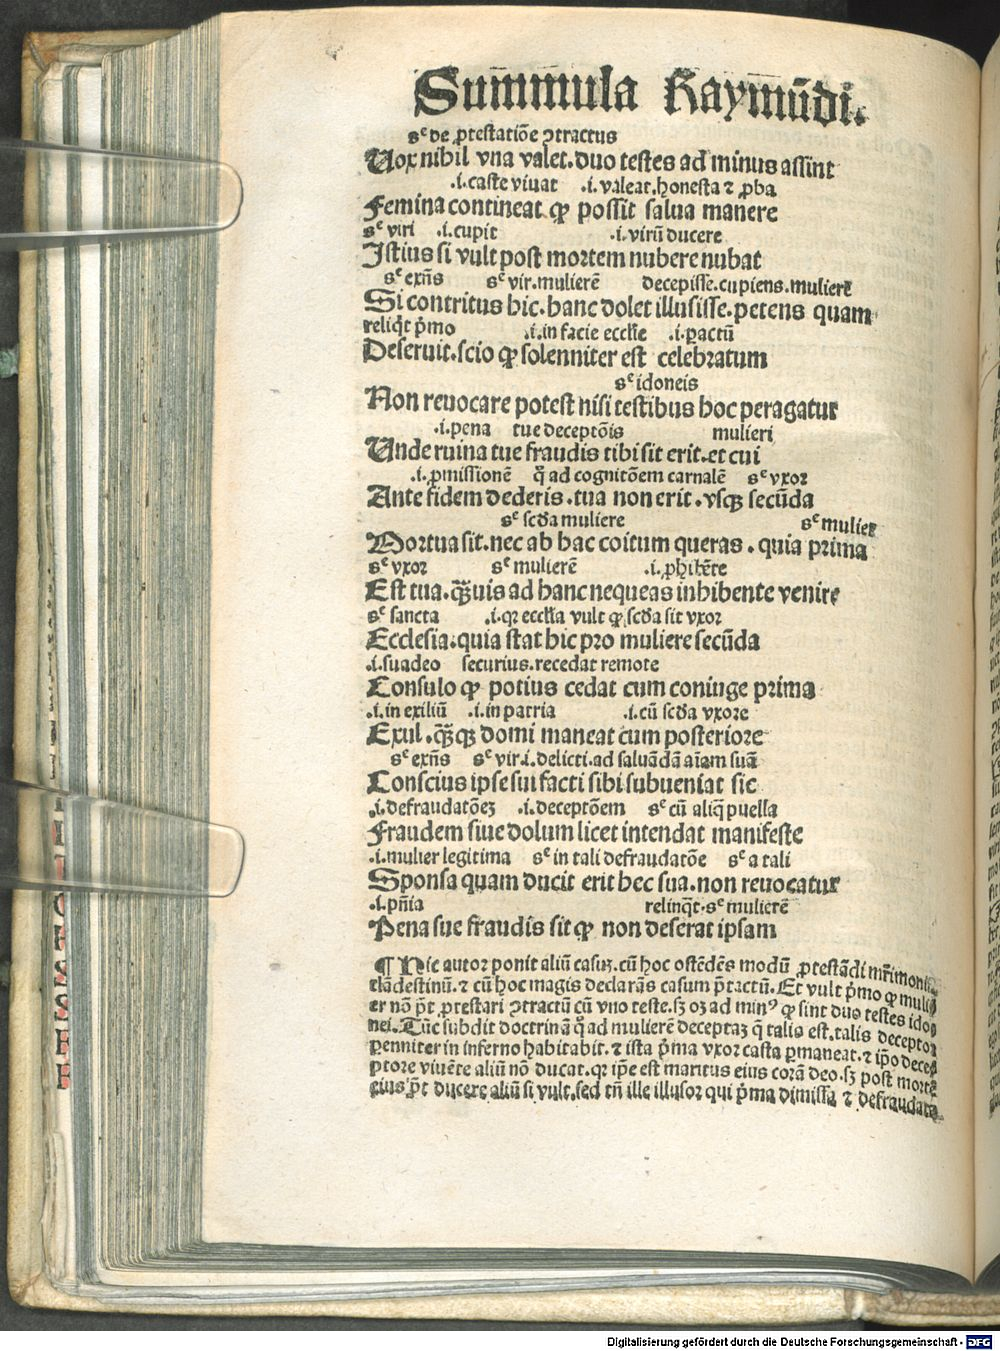 Sum̄mula Raymūdi.
sᵉ de ꝓtestatiōe ↄtractus
Uox nibil vna valet. duo testes ad minus assint
.i. caste viuat .i. valeat. honesta ⁊ ꝓba
Femina contineat ꝙ possit salua manere
sᵉ viri .i. cupit .i. virū ducere
Istius si vult post mortem nubere nubat
sᵉ exn̄s sᵉ vir. mulierē decepisse. cupiens. muliere
Si contritus hic. hanc dolet illusisse. petens quam
reliq̄t p̄mo .i. in facie eccƚie .i. pactū
Deseruit. scio ꝙ solenniter est celebratum
sᵉ idoneis
Non reuocare potest nisi testibus hoc peragatur
.i. pena tue deceptōis mulieri
Unde ruina tue fraudis tibi sit erit. et cui
.i. ꝓmissionē q̄ ad cognitōem carnalē sᵉ vxor
Ante fidem dederis. tua non erit. vsqꝫ secūda
sᵉ scd̄a muliere sᵉ mulier
Mortua sit. nec ab hac coitum queras. quia prima
sᵉ vxor sᵉ mulierē .i. ꝓhibēte
Est tua. qꝫuis ad hanc nequeas inhibente venire
sᵉ sancta .i. qꝛ eccƚia vult ꝙ scd̄a sit vxor
Ecclesia. quia stat hic pro muliere secūda
.i. suadeo securius. recedat remote
Consulo ꝙ potius cedat cum coniuge prima
.i. in exiliū .i. in patria .i. cū scd̄a vxore
Exul. qꝫqꝫ domi maneat cum posteriore
sᵉ exn̄s sᵉ vir .i. delicti. ad saluādā aīam suā
Conscius ipse sui facti sibi subueniat sic
.i. defraudatōeꝫ .i. deceptōem sᵉ cū aliq̄ puella
Fraudem siue dolum licet intendat manifeste
.i. mulier legitima sᵉ in tali defraudatōe sᵉ a tali
Sponsa quam ducit erit hec sua. non reuocatur
.i. pn̄ia relinq̄t. sᵉ mulierē
Pena sue fraudis sit ꝙ non deserat ipsam
¶ Hic autor ponit aliū casuꝫ. cū hoc ostēdēs modū ꝓtestādi mr̄imoniū
clādestinū. ⁊ cū hoc magis declarās casum p̄tactū. Et vult p̄mo ꝙ muli
er nō p̄t ꝓtestari ↄtractū cū vno teste. sꝫ oꝫ ad minꝰ ꝙ sint duo testes ido
nei. Tūc subdit doctrinā q̄ ad mulierē deceptaꝫ q̄ talis est. talis deceptor
ꝑenniter in inferno habitabit. ⁊ ista p̄ma vxor casta ꝑmaneat. ⁊ ip̄o dece
ptore viuēte aliū nō ducat. qꝛ ip̄e est maritus eius corā deo. sꝫ post mortē
eius p̄t ducere aliū si vult. sed tn̄ ille illusor qui p̄ma dimissa ⁊ defraudata
Digitalisierung gefördert durch die Deutsche Forschungsgemeinschaft - DFG